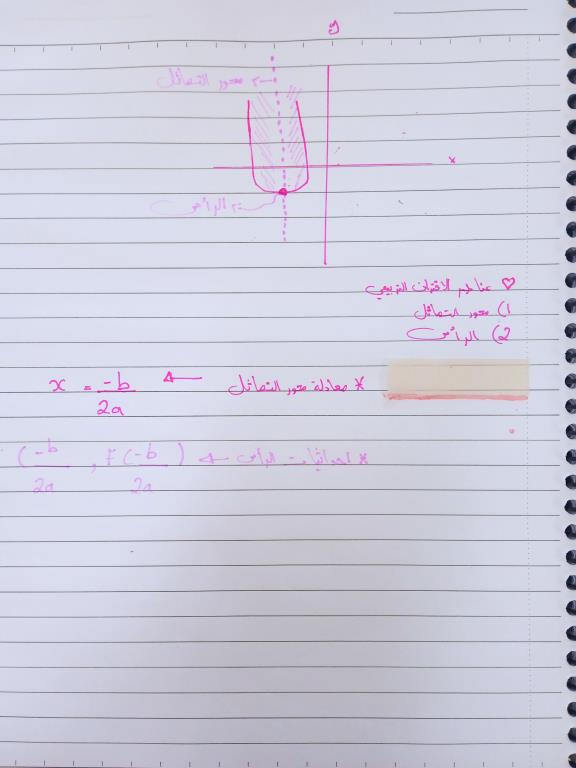 y
محور التماثل
x
الرأس
♡ عناصر الاقتران التربيعي
1) محور التماثل
2) الرأس
* معادلة محور التماثل ← x = -b/2a
* احداثيات الرأس ← (-b/2a , F(-b/2a)